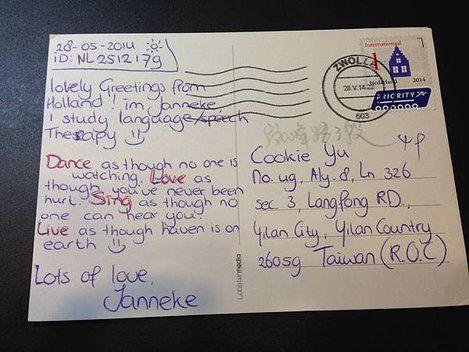 28-05-2014
ID: NL2512179
lovely Greetings from
Holland! im Janneke
I study language/speech
Therapy
Dance as though no one is
watching, Love as
though you've never been
hurt. Sing as though no
one can hear you.
Live as though haven is on
earth
Lots of love,
Janneke
lobstermedia
ZWOLLE
28.V.14-22
603
Internationaal
1
Nederland
2014
PRIORITY
Cookie Yu
No. 49, Aly. 8, Ln 326
sec. 3, Langfong RD.,
Yilan City, Yilan Country
26059 Taiwan (R.O.C)